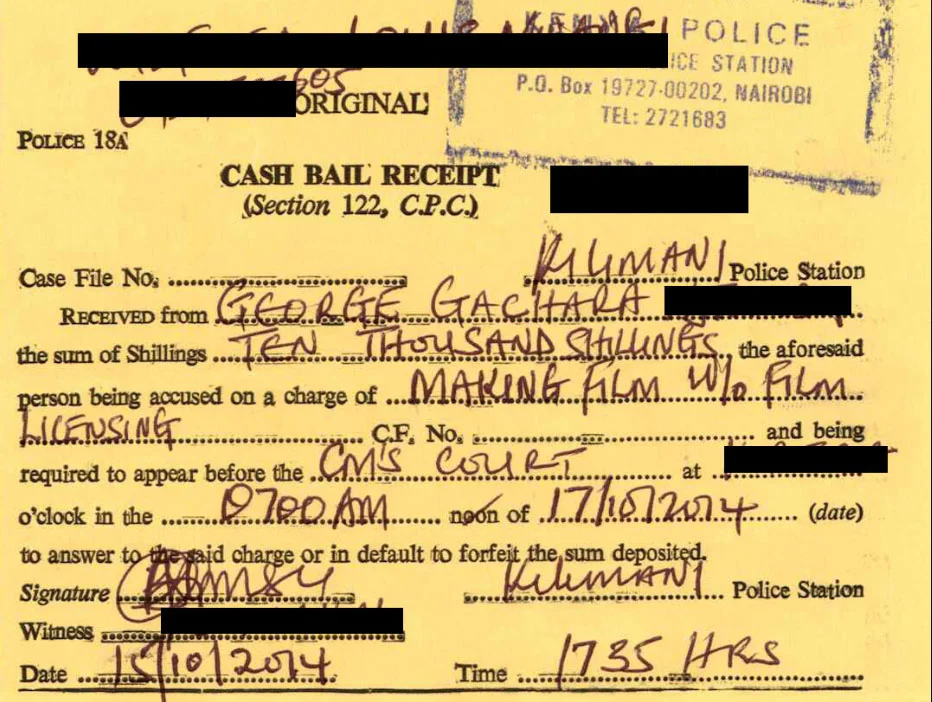 POLICE
ICE STATION
P.O. Box 19727-00202, NAIROBI
TEL: 2721683
605
ORIGINAL
POLICE 18A
CASH BAIL RECEIPT
(Section 122, C.P.C.)
Case File No. KILIMANI Police Station
RECEIVED from GEORGE GACHARA
the sum of Shillings TEN THOUSAND SHILLINGS the aforesaid
person being accused on a charge of MAKING FILM W/o FILM
LICENSING C.F. No. and being
required to appear before the CM'S COURT at
o'clock in the 0700AM noon of 17/10/2014 (date)
to answer to the said charge or in default to forfeit the sum deposited.
Signature KILIMANI Police Station
Witness
Date 15/10/2014 Time 1735 HRS